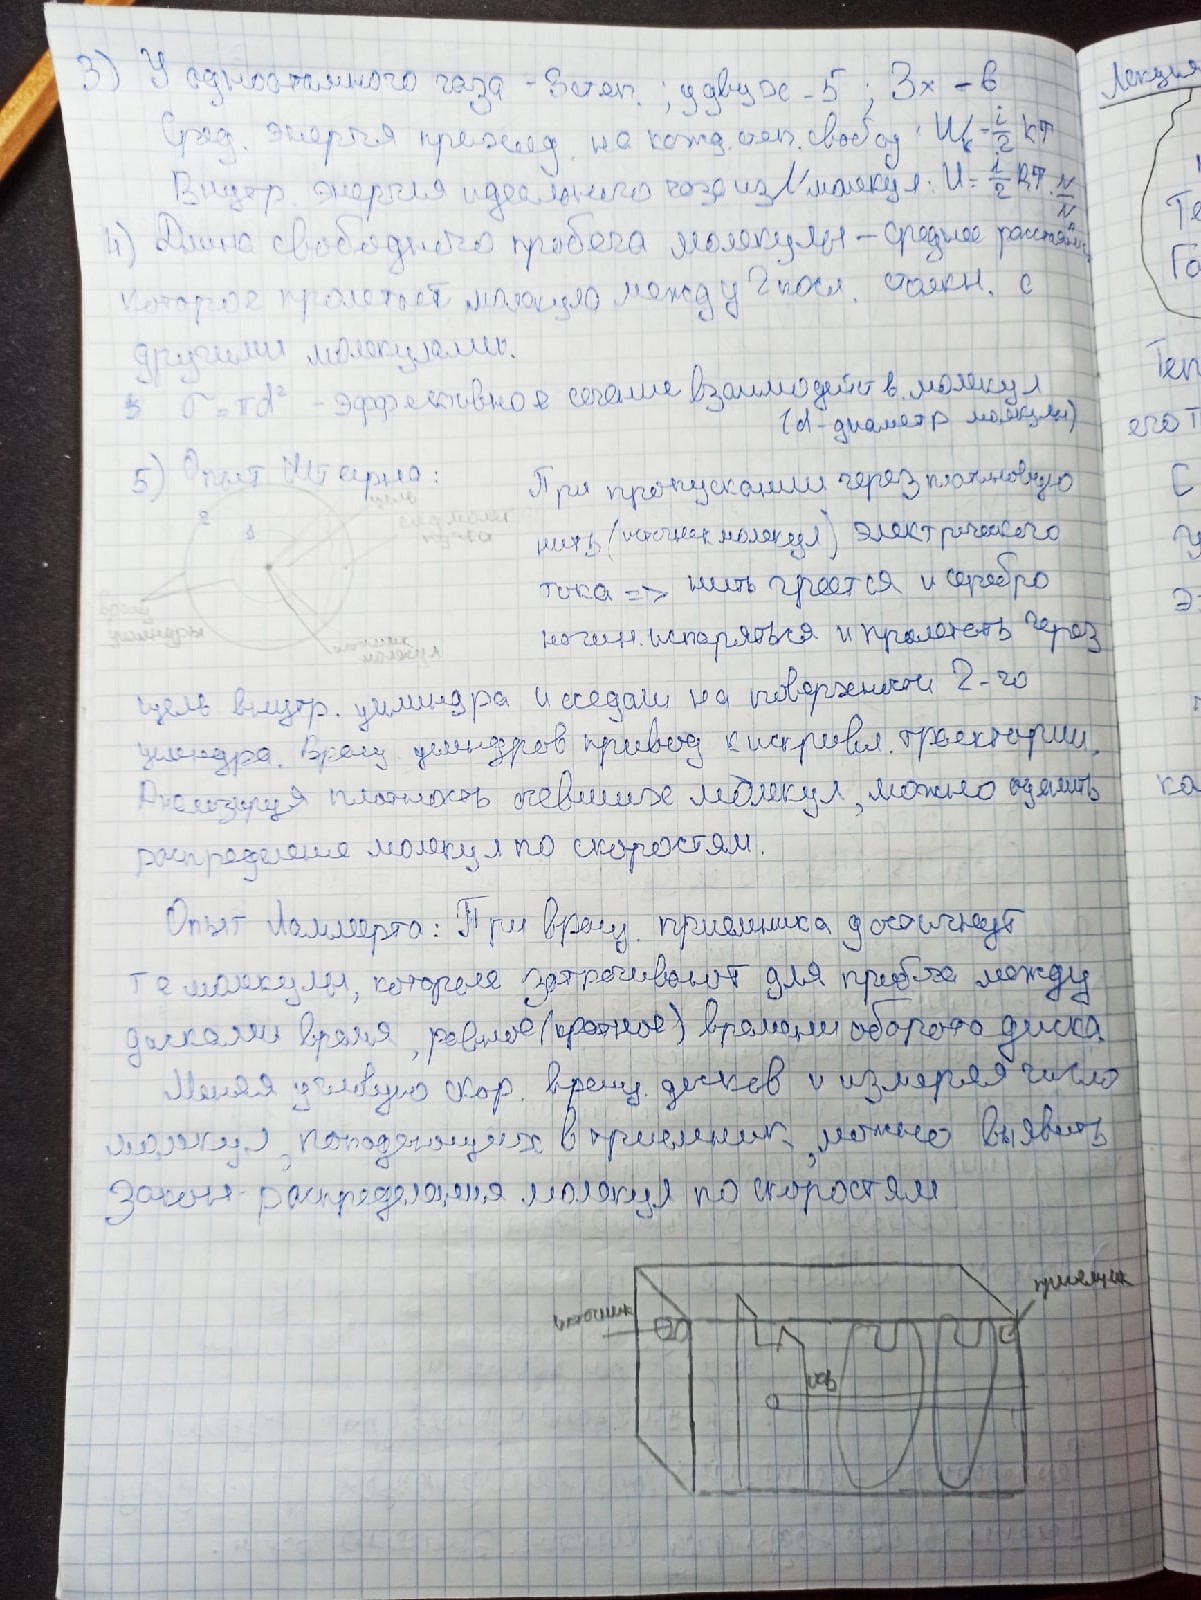 3) У одноатомного газа - 3 степ.; у двух - 5; 3х - 6
Сред. энергия приход. на кажд. степ. свобод: Wк = i/2 kT
Внутр. энергия идеального газа из N молекул: U = i/2 RT N/Nₐ
4) Длина свободного пробега молекулы - среднее расстояние,
которое пролетает молекула между 2 посл. столкн. с
другими молекулами.
σ = πd² - эффективное сечение взаимодейств. молекул
(d - диаметр молекулы)
5) Опыт Штерна:
2
1
щель
молек
пучка
При пропускании через платиновую
нить (источник молекул) электрического
тока => нить греется и серебро
начин. испаряться и пролетать через
цилиндры
щель внутр. цилиндра и оседали на поверхности 2-го
цилиндра. Вращ. цилиндров привод к искривл. траектории.
Анализируя плотность осевших молекул, можно оценить
распределение молекул по скоростям.
Опыт Ламмерта: При вращ. приемника достигнут
те молекулы, которые затрачивают для пробега между
дисками время, равное (кратное) времени оборота диска
Меняя угловую скор. вращ. дисков и измеряя число
молекул, попадающих в приемник, можно выявить
закон распределения молекул по скоростям
приемник
источник
Лекция
Те
Га
Теп
его т
С
У
Э
ка